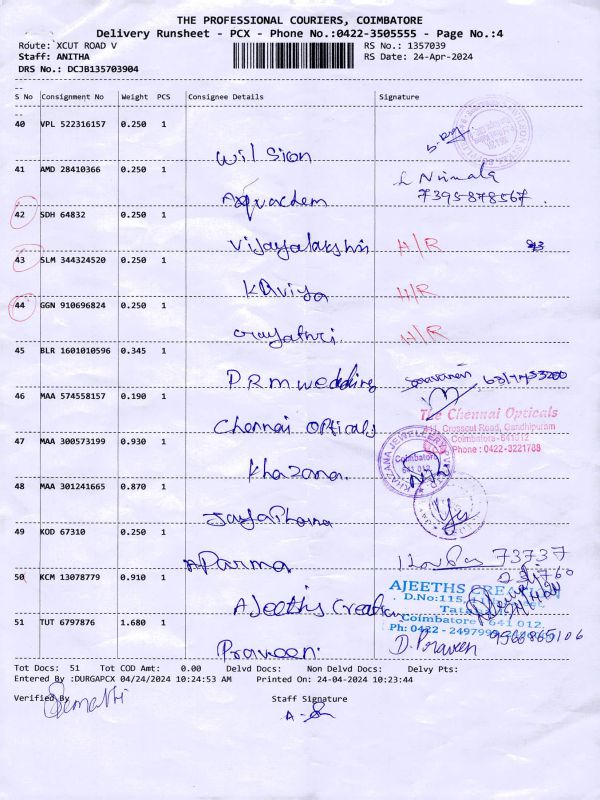 THE PROFESSIONAL COURIERS, COIMBATORE
Delivery Runsheet - PCX - Phone No.:0422-3505555 - Page No.:4
Route: XCUT ROAD V RS No.: 1357039
Staff: ANITHA RS Date: 24-Apr-2024
DRS No.: DCJB135703904
S No Consignment No Weight PCS Consignee Details Signature
40 VPL 522316157 0.250 1
Wilsion
41 AMD 28410366 0.250 1 L Nirmala
7395878567
Aquachem
42 SDH 64832 0.250 1
Vijayalakshmi H/R
43 SLM 344324520 0.250 1
Kaviya H/R
44 GGN 910696824 0.250 1
Gayathri. H/R
45 BLR 1601010596 0.345 1
PRM wedding Saravanan
46 MAA 574558157 0.190 1
The Chennai Opticals
Chennai Opticals Crosscut Road, Gandhipuram
Coimbatore-641012
47 MAA 300573199 0.930 1 Phone : 0422-3221788
KHAZANA JEWELLERY
Coimbatore
641 012
Khazana.
48 MAA 301241665 0.870 1
Jayaphama
49 KOD 67310 0.250 1
A Parma 73737
50 KCM 13078779 0.910 1
AJEETHS CREATION
D.No:115,
Ajeeths Creation Coimbatore - 641 012.
51 TUT 6797876 1.680 1 Ph: 0422 - 2497999
Praveen. D. Praveen 9566865106
Tot Docs: 51 Tot COD Amt: 0.00 Delvd Docs: Non Delvd Docs: Delvy Pts:
Entered By :DURGAPCX 04/24/2024 10:24:53 AM Printed On: 24-04-2024 10:23:44
Verified By Staff Signature